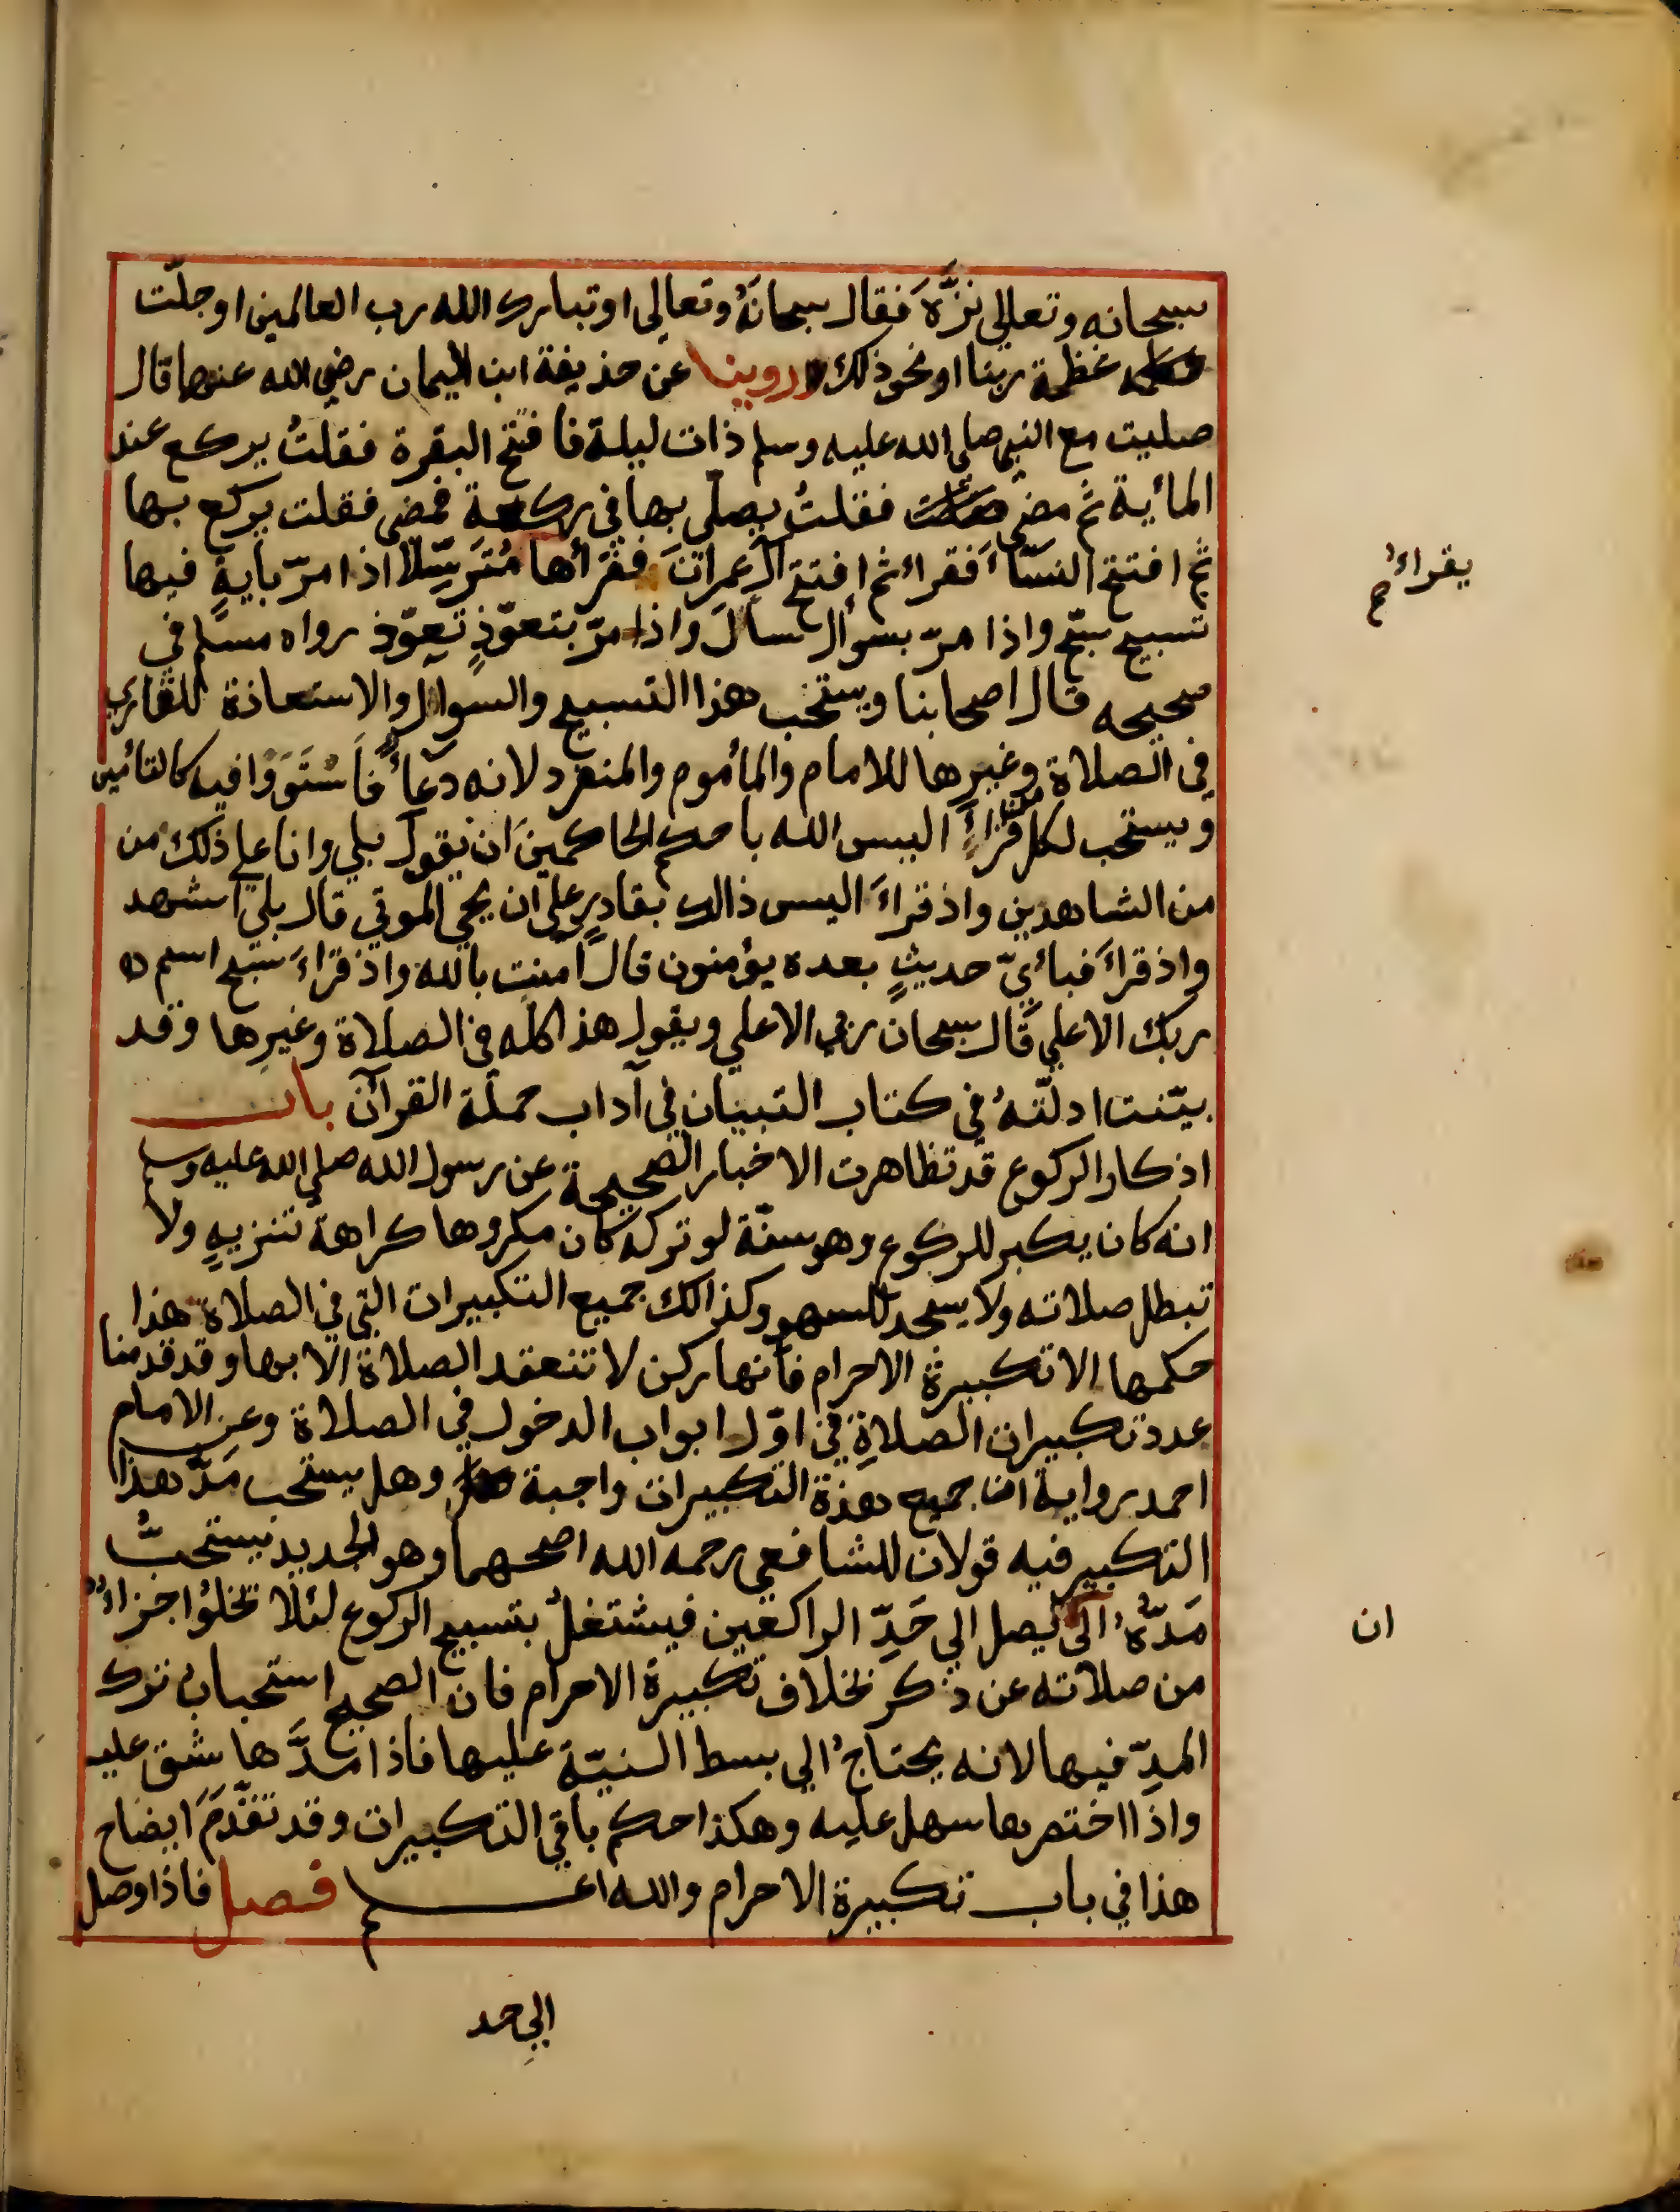 سبحانه وتعالى نزّهَ فقال سبحانَهُ وتعالى او تبارك الله رب العالمين او جلّت
عظمة ربنا او نحو ذلك روينا عن حذيفة ابن اليمان رضي الله عنهما قال
صليت مع النبي صلى الله عليه وسلم ذات ليلة فافتتح البقرة فقلتُ يركع عند
المأية ثم مضى فقلتُ يصلّي بها في ركعة فمضى فقلت يركع بها
ثم افتتح النسّاءَ فقراء ثم افتتح آل عمرانَ فقرأها مُتَرَسِّلًا اذا مرّ بايةٍ فيها
يقراءُ
تسبيح سبّح واذا مرّ بسوال سأل واذا مرّ بتعوّذٍ تعوّذ رواه مسلم في
صحيحه قال اصحابنا ويستحب هذا التسبيح والسوال والاستعاذة للقاري
في الصلاة وغيرها للامام والمأموم والمنفرد لانه دعآءٌ فاَسْتَوَوْا فيه كالتأمين
ويستحب لكل من قراءَ اليس الله باحكم الحاكمينَ ان يقول بلي وانا علي ذلك من
من الشاهدين واذ قراءَ اليس ذالك بقادرٍ علي ان يحي الموتي قال بلي اشهد
واذ قراءَ فبأيّ حديثٍ بعده يؤمنون قال آمنت بالله واذ قراءَ سبّح اسم
ربك الاعلي قال سبحان ربي الاعلي ويقول هذا كله في الصلاة وغيرِها وقد
بيّنت ادلّتهُ في كتاب التبيان في آداب حملة القرآن باب
اذكار الركوع قد تظاهرت الاخبار الصحيحة عن رسول الله صلي الله عليه وسلم
انه كان يكبر للركوع وهو سنّة لو تركه كان مكروها كراهة تنزيهٍ ولا
تبطل صلاته ولا يسجد للسهو وكذالك جميع التكبيرات التي في الصلاة هذا
حكمها الا تكبيرة الاحرام فانها ركن لا تنعقد الصلاة الا بها وقد قدمنا
عدد تكبيرات الصلاةِ في اوّل ابواب الدخول في الصلاة وعن الامام
احمد رواية ان جميع هذة التكبيرات واجبة وهل يستحب مَدّ هذا
التكبير فيه قولان للشافعي رحمه الله اصحهما وهو الجديد يستحبُّ
مَدّهُ الى يصل الي حَدِّ الراكعين فيشتغلُ بتسبيح الركوع لئلا تخلوُا جزاءٌ
ان
من صلاته عن ذكر بخلاف تكبيرة الاحرام فان الصحيح استحباب ترك
المدِّ فيها لانه يحتاجُ الي بسط النيّة عليها فاذا مدَّها شق عليه
واذا اختصرها سهل عليه وهكذا حكم باقي التكبيرات وقد تقدّمَ ايضاح
هذا في باب تكبيرة الاحرام والله اعلم فصل فاذا وصل
الي حد